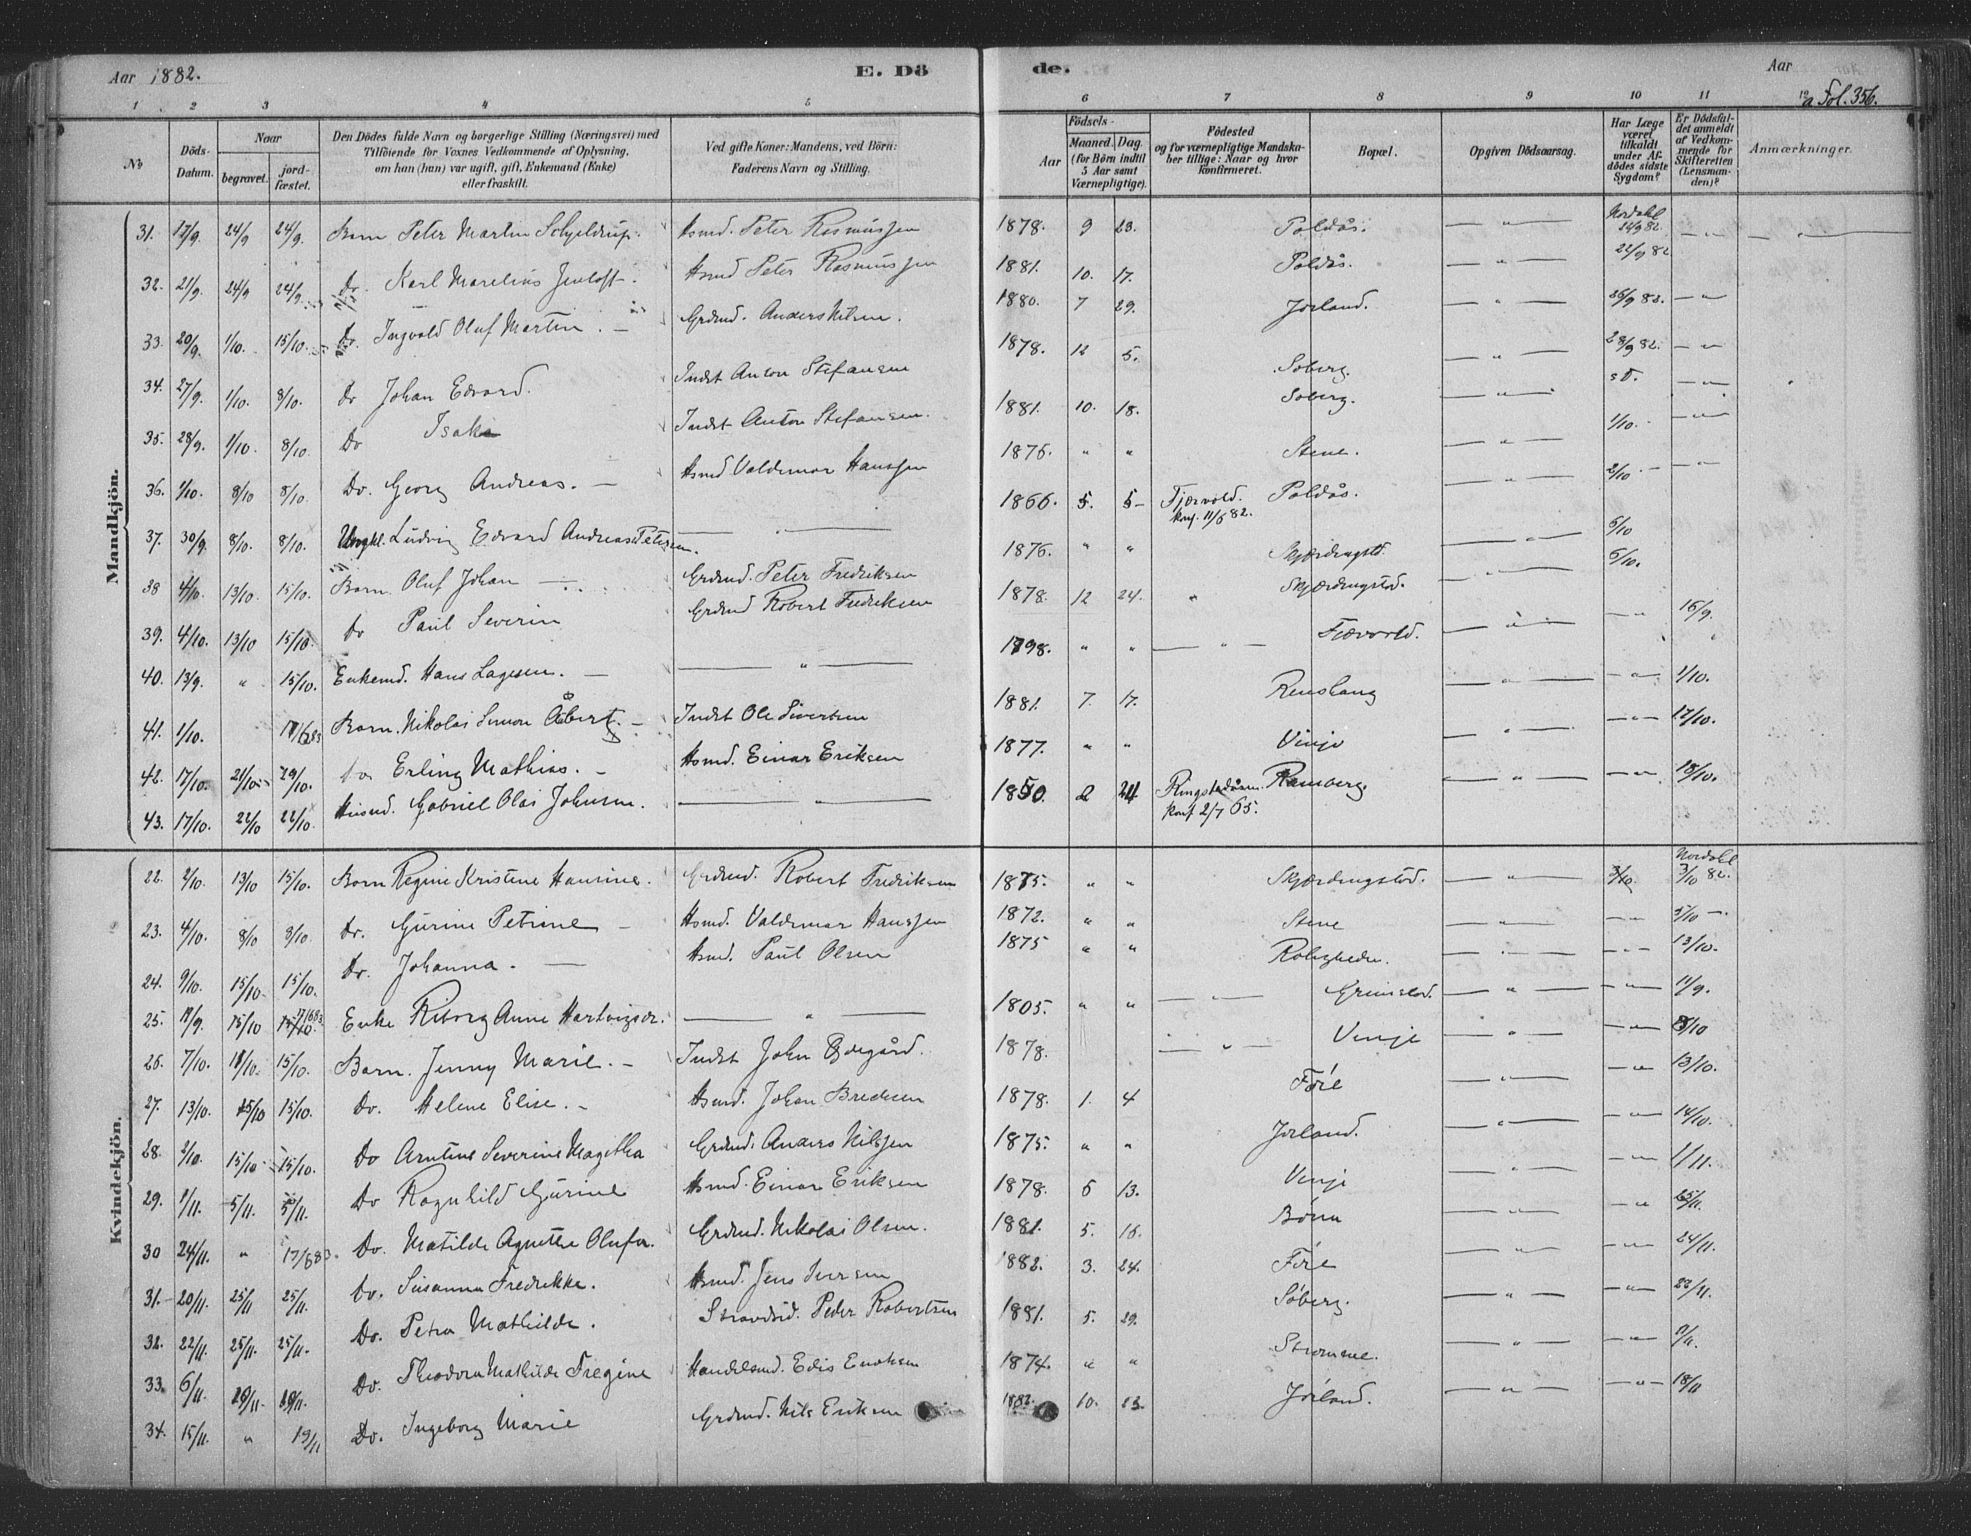 Aar 1882. E. Dö de. Aar
1 2 3 4 5 6 7 8 9 10 11 12 Fol. 356.
No
Döds-Datum.
Naar
begravet.
jord-fæstet.
Den Dödes fulde Navn og borgerlige Stilling (Næringsvei) med
Tilföiende for Voxnes Vedkommende af Oplysning,
om han (hun) var ugift, gift, Enkemand (Enke)
eller fraskilt.
Ved gifte Koner: Mandens, ved Börn:
Faderens Navn og Stilling.
Födsels-
Aar
Maaned. Dag.
(for Börn indtil
5 Aar samt
Værnepligtige).
Födested
og for værnepligtige Mandska-
ber tillige: Naar og hvor
konfirmeret.
Bopæl.
Opgiven Dödsaarsag.
Har Læge
været
tilkaldt
under Af-
dödes sidste
Sygdom?
Er Dödsfal-
det anmeldt
af Vedkom-
mende for
Skifteretten
(Lensman-
den)?
Anmærkninger.
Mandkjön.
31. 17/9. 24/9 24/9. Barn Peter Martin Schjeldrup. Hsmd. Peter Rasmussen 1878. 9 23. Poldås. — " — Nordahl 21/9 82. — " —
32. 21/9. 24/9 24/9. Do. Karl Marelius Jentoft. Hsmd Peter Rasmussen 1881. 10. 17. Poldås. — " — 22/9 82
33. 20/9. 1/10. 15/10. Do. Ingvald Oluf Martin. — Grdmd. Anders Nilsen. 1880. 7 29. Jorland. — " — 26/9 82. — " —
34. 27/9. 1/10. 8/10. Do Johan Edvard. Indst Anton Stefansen 1878. 12 5. Soberg. — " — 28/9 82. — " —
35. 28/9. 1/10. 8/10. Do Isak Indst Anton Stefansen. 1881. 10. 18. Soberg. — " — sd. — " —
36. 1/10. 8/10 8/10. Do. Georg Andreas. — Hsmd Valdemar Hanssen 1876. " " Stene. — " — 1/10. — " —
37. 30/9. 8/10. 8/10. Ungkl. Ludvig Edvard Andreas Petersen. — " — 1866. 5. 5 Fjærvold. konf. 11/6 82. Poldås. — " — 2/10. — — " —
38 4/10. 13/10. 15/10. Barn Oluf Johan — Grdmd. Peter Fredriksen 1876. " " Skjærdingstd. — " — 5/10
39. 4/10. 13/10 15/10. Do Paul Severin Grdmd Robert Fredriksen 1878. 12 24. " Skjærdingstod. — " — 6/10.
40. 13/9. " 15/10. Enkemd. Hans Lagesen. — — " — 1798. " " — " — Fjærvold. — " — — " — 16/9.
41. 1/10. 17/6 83 Barn. Nikolai Simon Åbert. — Indst Ole Sivertsen 1881. 7. 17. Renshaug — " — — " — 1/10.
42. 17/10. 21/10 29/10. Do Erling Mathias. — Hsmd. Einar Eriksen 1877. " " Vinje — " — — " — 17/10.
43. 17/10. 22/10 22/10. Husmd. Gabriel Olai Johnsen. — " — 1850. 2 24 Ringstadåsen konf 2/7 65. Ramberg. — " — — " — 18/10.
Kvindekjön.
22. 2/10. 13/10 15/10. Barn Regine Kristine Hansine. Grdmd. Robert Fredriksen 1875. " " Skjærdingstod. — " — 3/10. Nordahl 3/10 82.
23. 4/10. 8/10 8/10. Do. Gurine Petrine — Hsmd. Valdemar Hanssen 1872. " " Stene — " — — " — 5/10 —.
24. 9/10. 15/10 15/10. Do. Johanna. — Hsmd. Paul Olsen 1875 " " Roligheden. — " — — " — 13/10.
25. 11/9. 15/10 15/10. 17/6 83 Enke Riborg Anne Hartvigsdr. — " — 1805. " " — " — Grimstad. — " — — " — 11/9.
26. 7/10. 11/10. 15/10. Barn. Jenny Marie. — Indst John Ødegård. 1878. — " — Vinje — " — — " — 8/10
27. 13/10. 15/10 15/10. Do. Helene Elise. — Hsmd. Johan Bredesen 1878. 1. 4 Føre — " — — " — 13/10.
28. 2/10. 15/10 15/10. Do Arntine Severine Magetha Grdmd. Anders Nilssen 1875. " " Jorland. — " — — " — 14/10.
29. 1/11. 5/11. 5/11. Do Ragnhild Gurine Hsmd. Einar Eriksen 1878. 5 13. Vinje — " — — " — 1/11.
30 24/11. " 17/6 83. Do. Matilde Agnethe Olufa. Grdmd. Nikolai Olsen. 1881. 5. 16. Bønn — " — — " — 25/11.
31. 20/11. 25/11 25/11. Do. Susanna Fredrikke. Hsmd. Jens Iversen 1882. 3. 24. Føre — " — — " — 24/11.
32. 22/11. 25/11. 25/11. Do. Petra Mathilde. Strandsid. Peder Robertsen 1881. 5. 29. Søberg. — " — — " — 22/11.
33. 6/11. 19/11. 19/11. Do. Theodora Mathilde Fregine Handelsmd. Edis Enoksen 1874. " " Strømme. — " — — " — 9/11.
34. 15/11. " 19/11 Do. Ingeborg Marie Grdmd. Nils Eriksen 1882. 10. 23. Jorland. — " — — " — 18/11